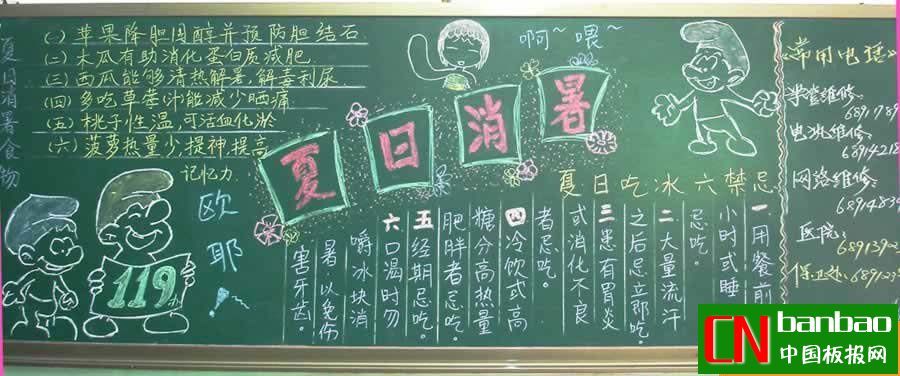 夏日消暑食物
(一) 苹果降胆固醇并预防胆结石
(二) 木瓜有助消化蛋白质减肥
(三) 西瓜能够清热解暑,解毒利尿
(四) 多吃草莓汁能减少晒痛
(五) 桃子性温,可活血化淤
(六) 菠萝热量少,提神提高
记忆力
啊~喂~
夏日消暑
欧耶!
119
夏日吃冰六禁忌
一用餐前
小时或睡
忌吃。
二大量流汗
之后忌立即吃。
三患有胃炎
或消化不良
者忌吃。
四冷饮或高
糖分高热量
肥胖者忌吃。
五经期忌吃。
六口渴时勿
嚼冰块消
暑以免伤
害牙齿。
《常用电话》
维修:
6891789
电洗维修:
68914218
网络维修:
医院:
保卫处:
CN banbao
中国板报网